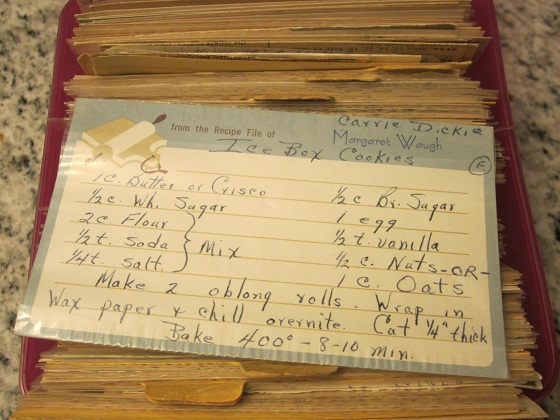 Carrie Dickie
from the Recipe File of Margaret Waugh
Ice Box Cookies E
1 c. Butter or Crisco
½ c. Wh. Sugar
2 c Flour
½ t. soda
¼ t. salt
Mix
½ c Br. Sugar
1 egg
½ t. vanilla
½ c. Nuts-OR-
1 c. Oats
Make 2 oblong rolls. Wrap in
Wax paper & chill overnite. Cut ¼" thick
Bake 400° - 8-10 min.